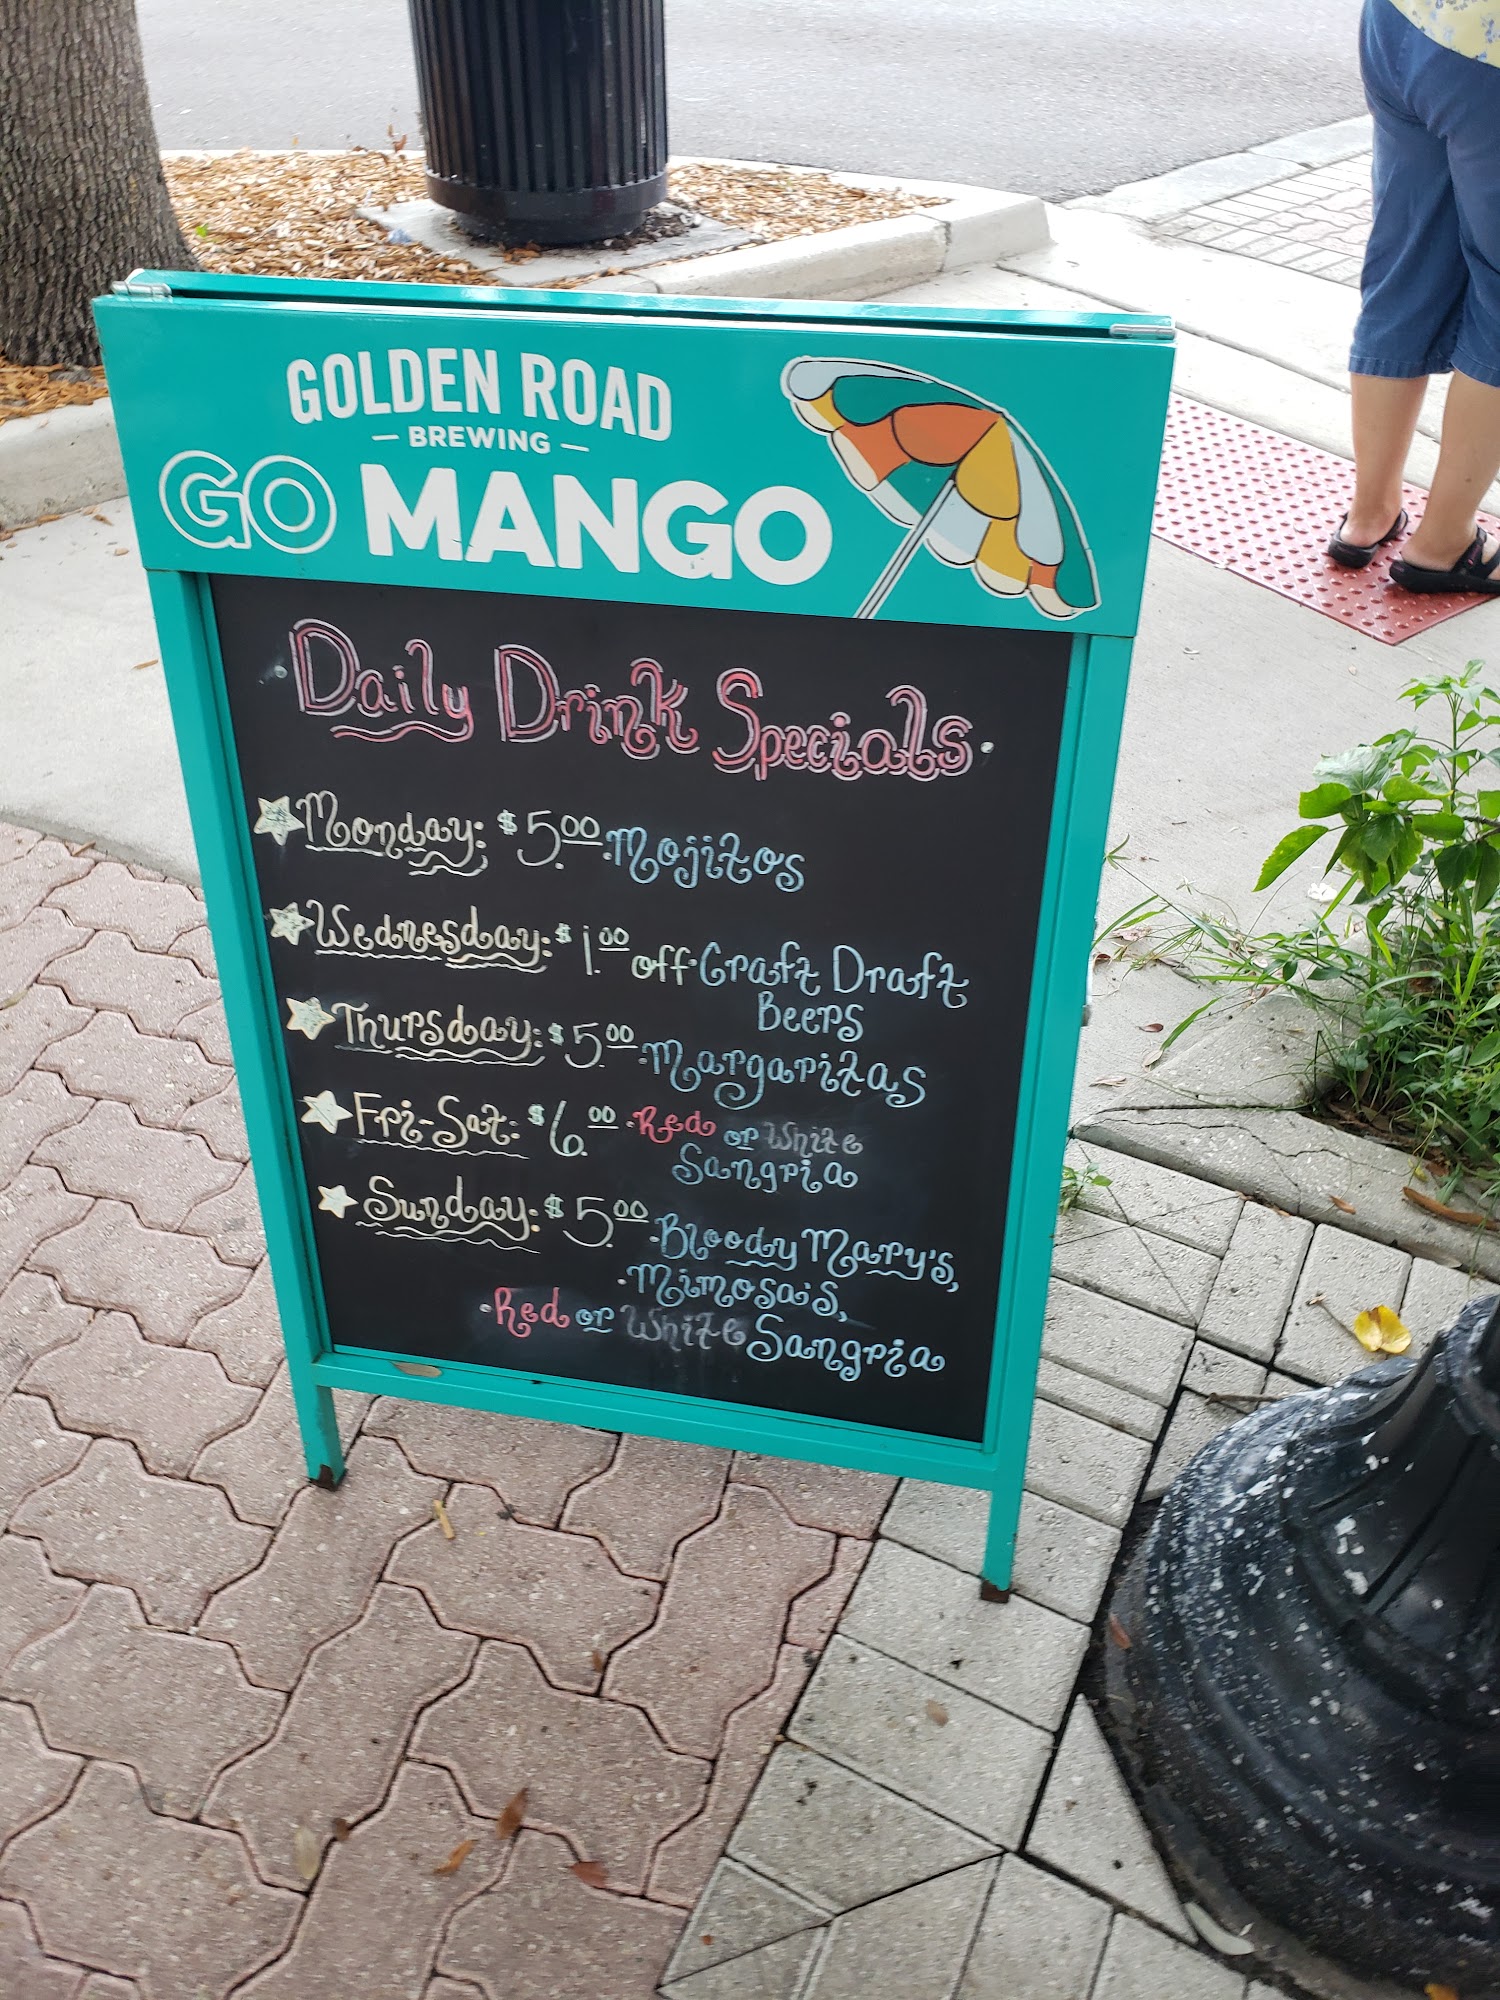 GOLDEN ROAD
— BREWING —
GO MANGO
Daily Drink Specials
Monday: $5.00 • Mojitos
Wednesday: $1.00 off • Craft Draft
Beers
Thursday: $5.00 • Margaritas
Fri-Sat: $6.00 • Red or White
Sangria
Sunday: $5.00 • Bloody Mary's,
• Mimosa's,
• Red or White Sangria